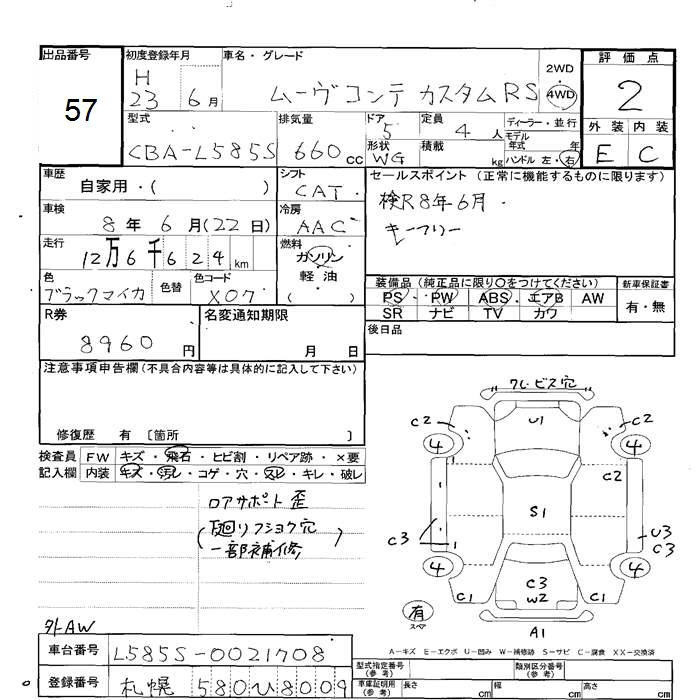 出品番号 57
初度登録年月 H 23 6月
車名・グレード ムーヴコンテ カスタムRS
2WD 4WD
評価点 2
外装 内装
E C
型式 CBA-L585S
排気量 660 cc
ドア 5
形状 WG
定員 4 人
積載 kg
ディーラー・並行
モデル年式 年
ハンドル 左・右
車歴 自家用・( )
シフト CAT
セールスポイント(正常に機能するものに限ります)
検R8年6月
キーフリー
車検 8年 6月(22日)
冷房 AAC
走行 12万6千624km
燃料 ガソリン 軽油 ( )
色 ブラックマイカ
色替
色コード X07
装備品(純正品に限り○をつけてください)
PS・PW・ABS・エアB AW
SR ナビ TV カワ
新車保証書 有・無
R券 8960円
名変通知期限 月 日
後日品
注意事項申告欄(不具合内容等は具体的に記入して下さい)
修復歴 有 〔箇所 〕
検査員記入欄
FW キズ・飛石・ヒビ割・リペア跡・×要
内装 キズ・汚レ・コゲ・穴・スレ・キレ・破レ
ロアサポート歪
(下廻りフショク穴
一部補修)
外AW
フレ・ビス穴
C2 U1 C2
4 4
C2
S1
C3 U3
C3
4 4
C3
C1 W2 C1
有
スペア
A1
A-キズ E-エクボ U-凹み W-補修跡 S-サビ C-腐食 XX-交換済
車台番号 L585S-0021708
型式指定番号(参考)
類別区分番号(参考)
登録番号 札幌 580ひ8009
車庫証明用(参考) 長さ cm 幅 cm 高さ cm